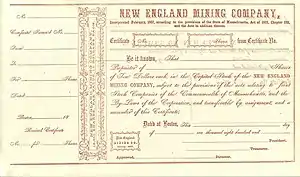 NEW ENGLAND MINING COMPANY,
Incorporated February, 1867, according to the provisions of the Statutes of Massachusetts, Act of 1851, Chapter 133,
and the Acts in addition thereto.
No.
Certificate
No.
Shares
from Certificate No.
To
For Shares
Dated
18
No. for Shares
Be it known, That
Proprietor of Shares
of Ten Dollars each, in the Capital Stock of the NEW ENGLAND
MINING COMPANY, subject to the provisions of the acts relating to Joint
Stock Companies of the Commonwealth of Massachusetts, and the
By-Laws of the Corporation, and transferable by assignment, and a
surrender of this Certificate.
Dated at Boston, this day
of one thousand eight hundred and
New England
MINING CO.
President.
Treasurer.
Approved,
Trustee.